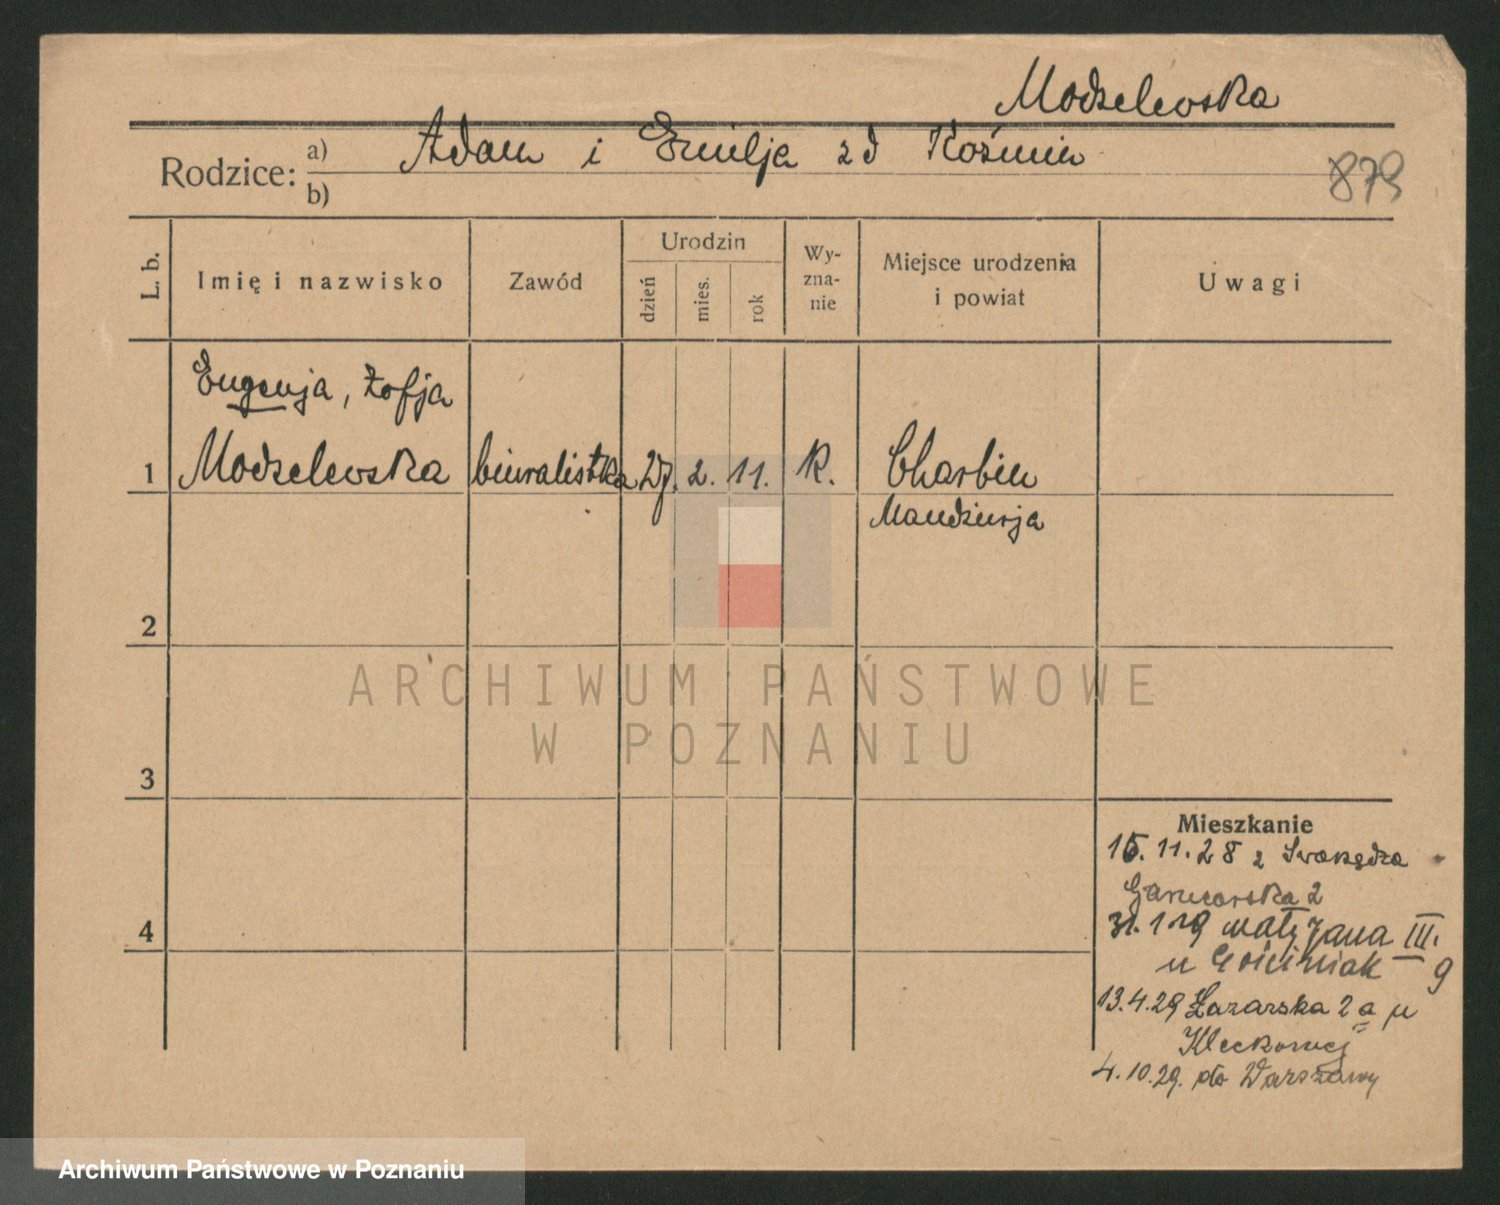 Modzelewska
Rodzice: a) Adam i Emilja zd Koźmin
b)
879
L. b.
Imię i nazwisko
Zawód
Urodzin
dzień
mies.
rok
Wy-
zna-
nie
Miejsce urodzenia
i powiat
Uwagi
Eugenja, Zofja
1 Modzelewska biuralistka 27. 2. 11. K. Charbin
Mandżurja
2
3
4
Mieszkanie
15. 11. 28 z Swarzędza
Garncarska 2
31. 1 29 Matejki III.
u Gościniak 9
13. 4. 29 Łazarska 2a u
Kleckowej
4. 10. 29. do Warszawy
ARCHIWUM PAŃSTWOWE
W POZNANIU
Archiwum Państwowe w Poznaniu